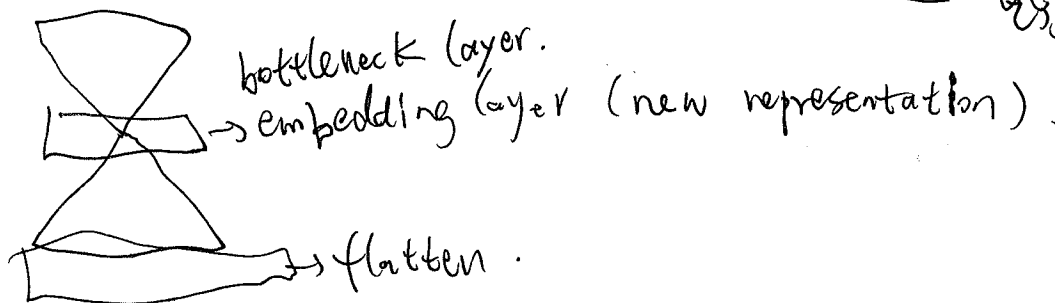 bottleneck layer.
→ embedding layer (new representation).
→ flatten.